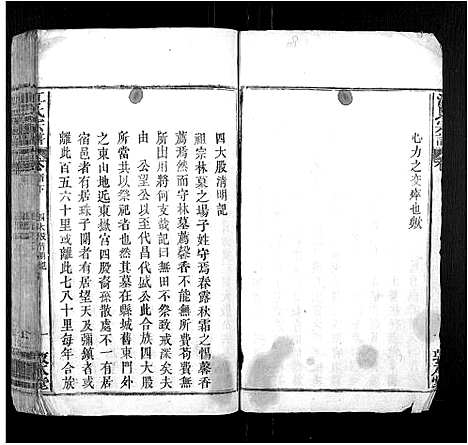 心力之交瘁也歟
四大股清明記
祖宗林墓之場子姓守焉春露秋霜之惕馨香
薦焉然而守林墓薦馨香不能無所費苟無費
所出用將何支哉記曰無田不祭政戒深矣夫
由 公望公以至代昌代誠公此合族四大股
所當共以祭祀者也然其墓在縣城舊東門外
之東山地近東嶽宮四股裔孫散處不一有居
宿邑者有居珠子關者有居望天及彌鎮者或
離此百五六十里或離此七八十里每年合族
江氏宗譜
四大股清明記